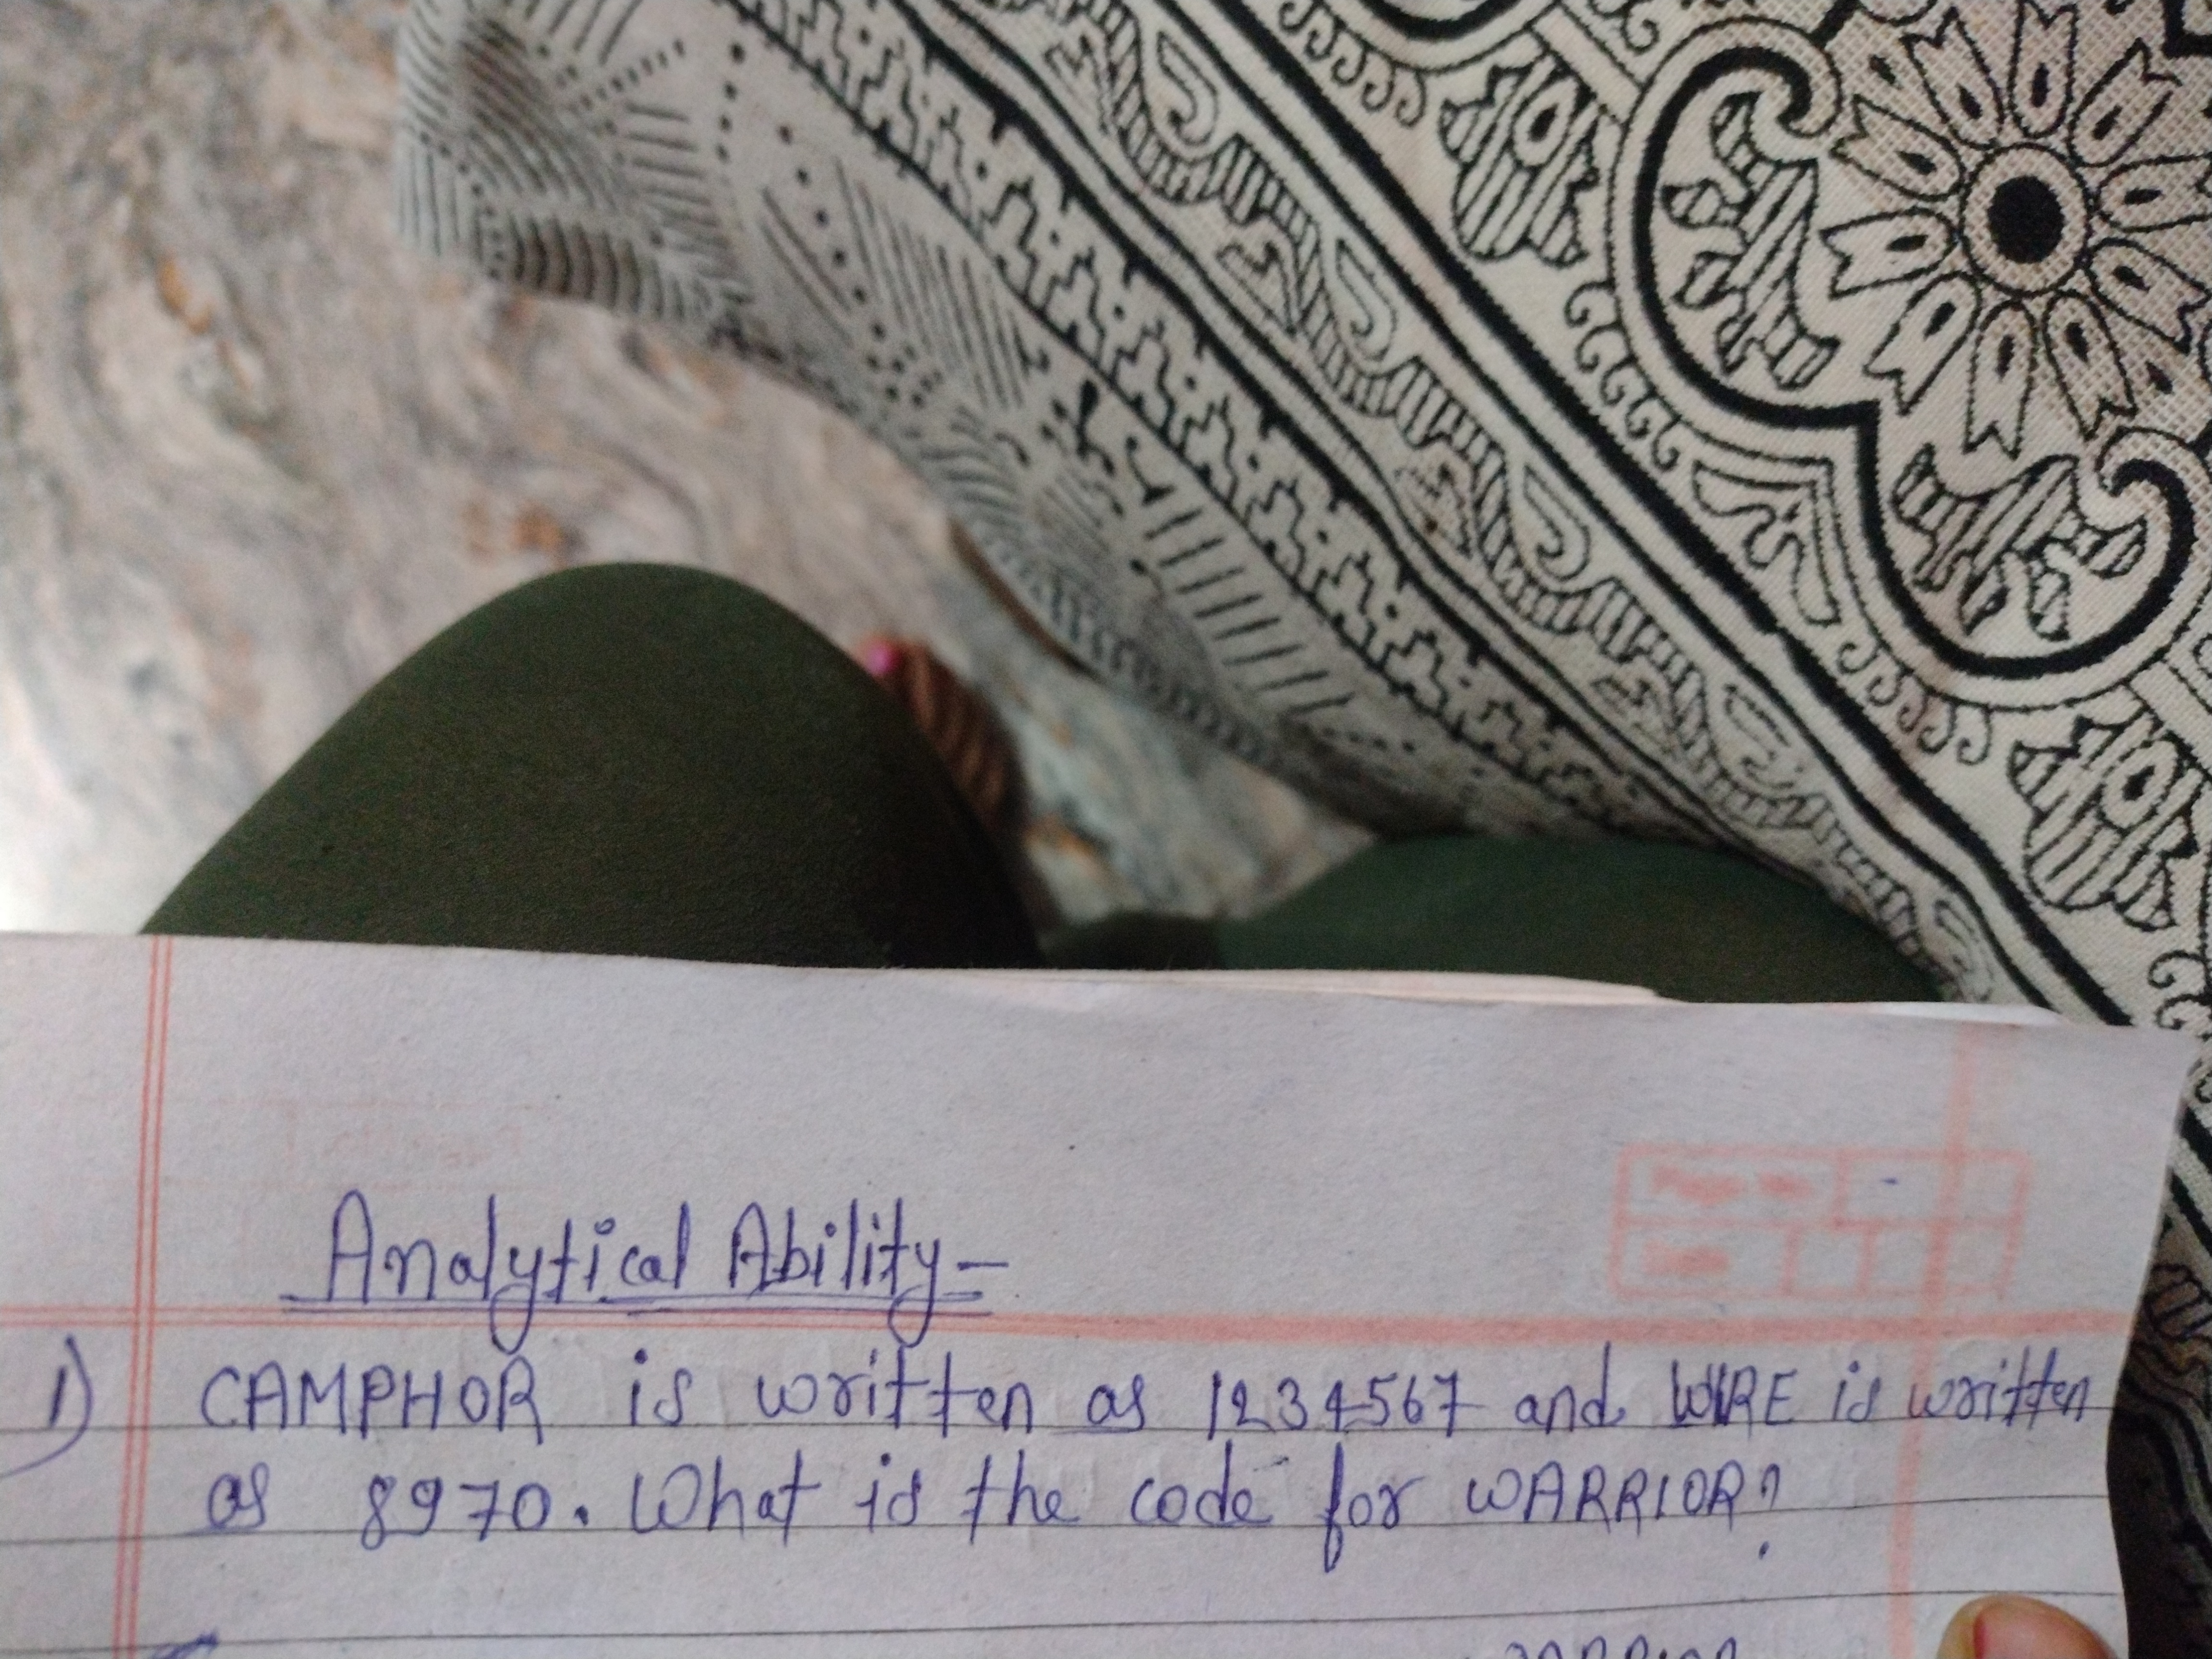 Analytical Ability -
1) CAMPHOR is written as 1234567 and WIRE is written
as 8970. What is the code for WARRIOR?